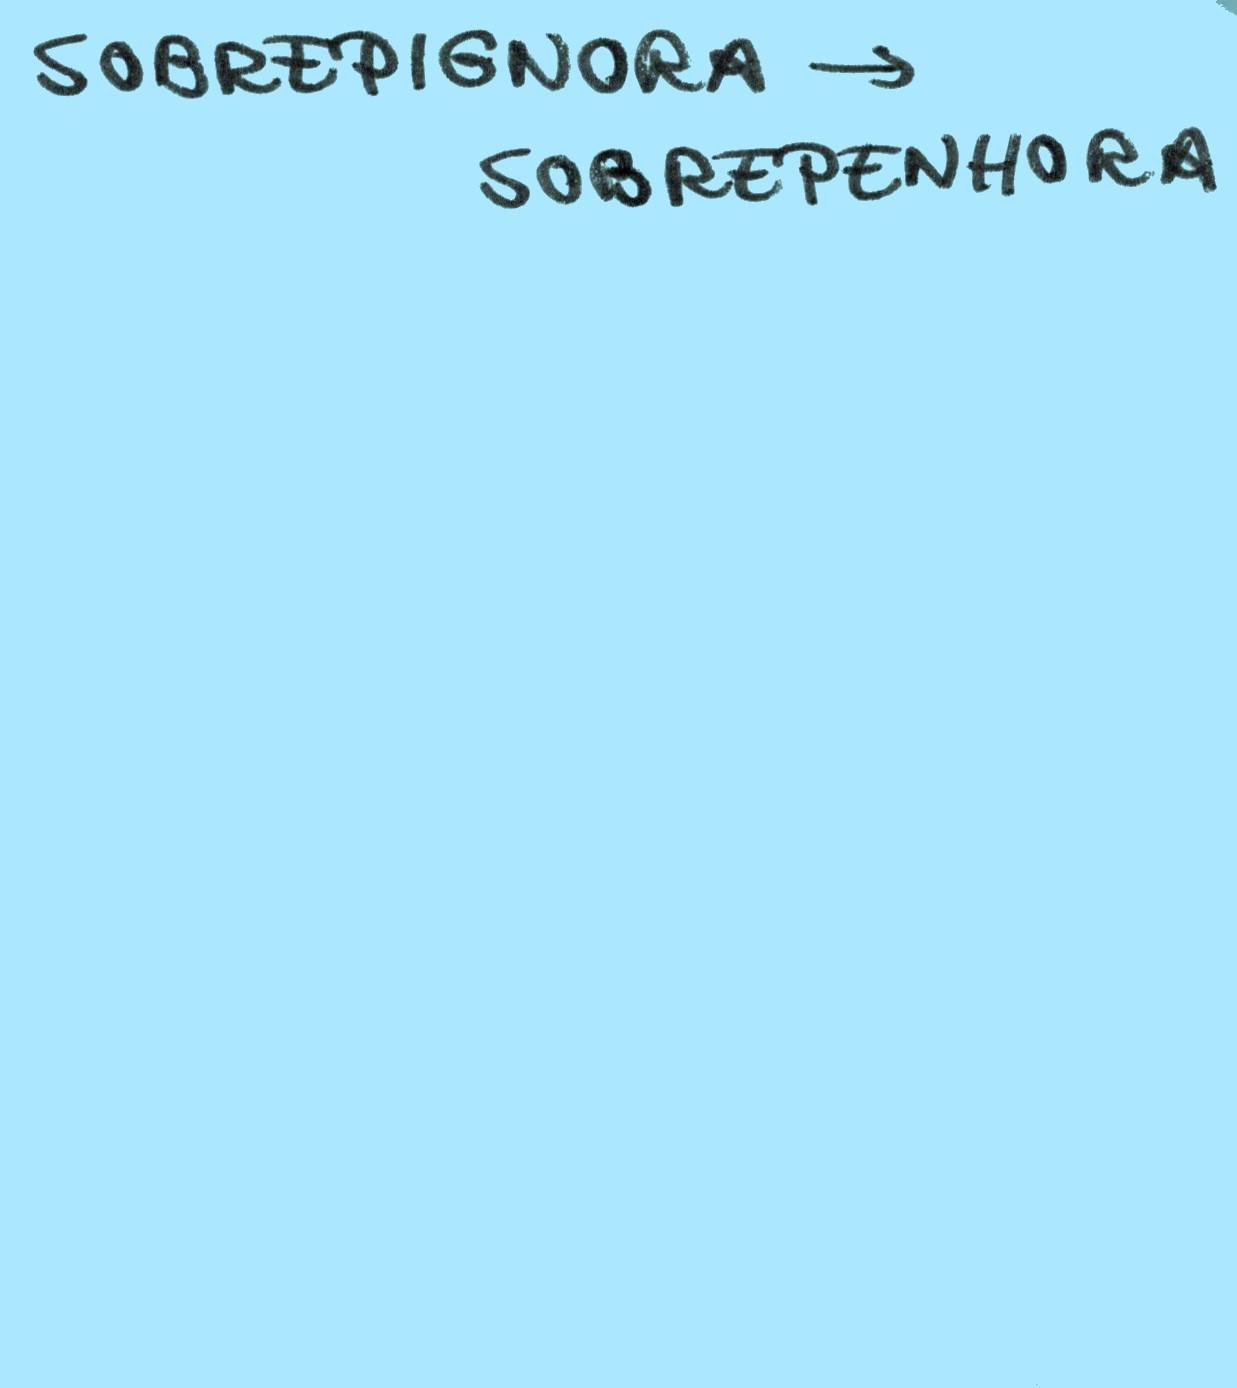 SOBREPIGNORA →
SOBREPENHORA